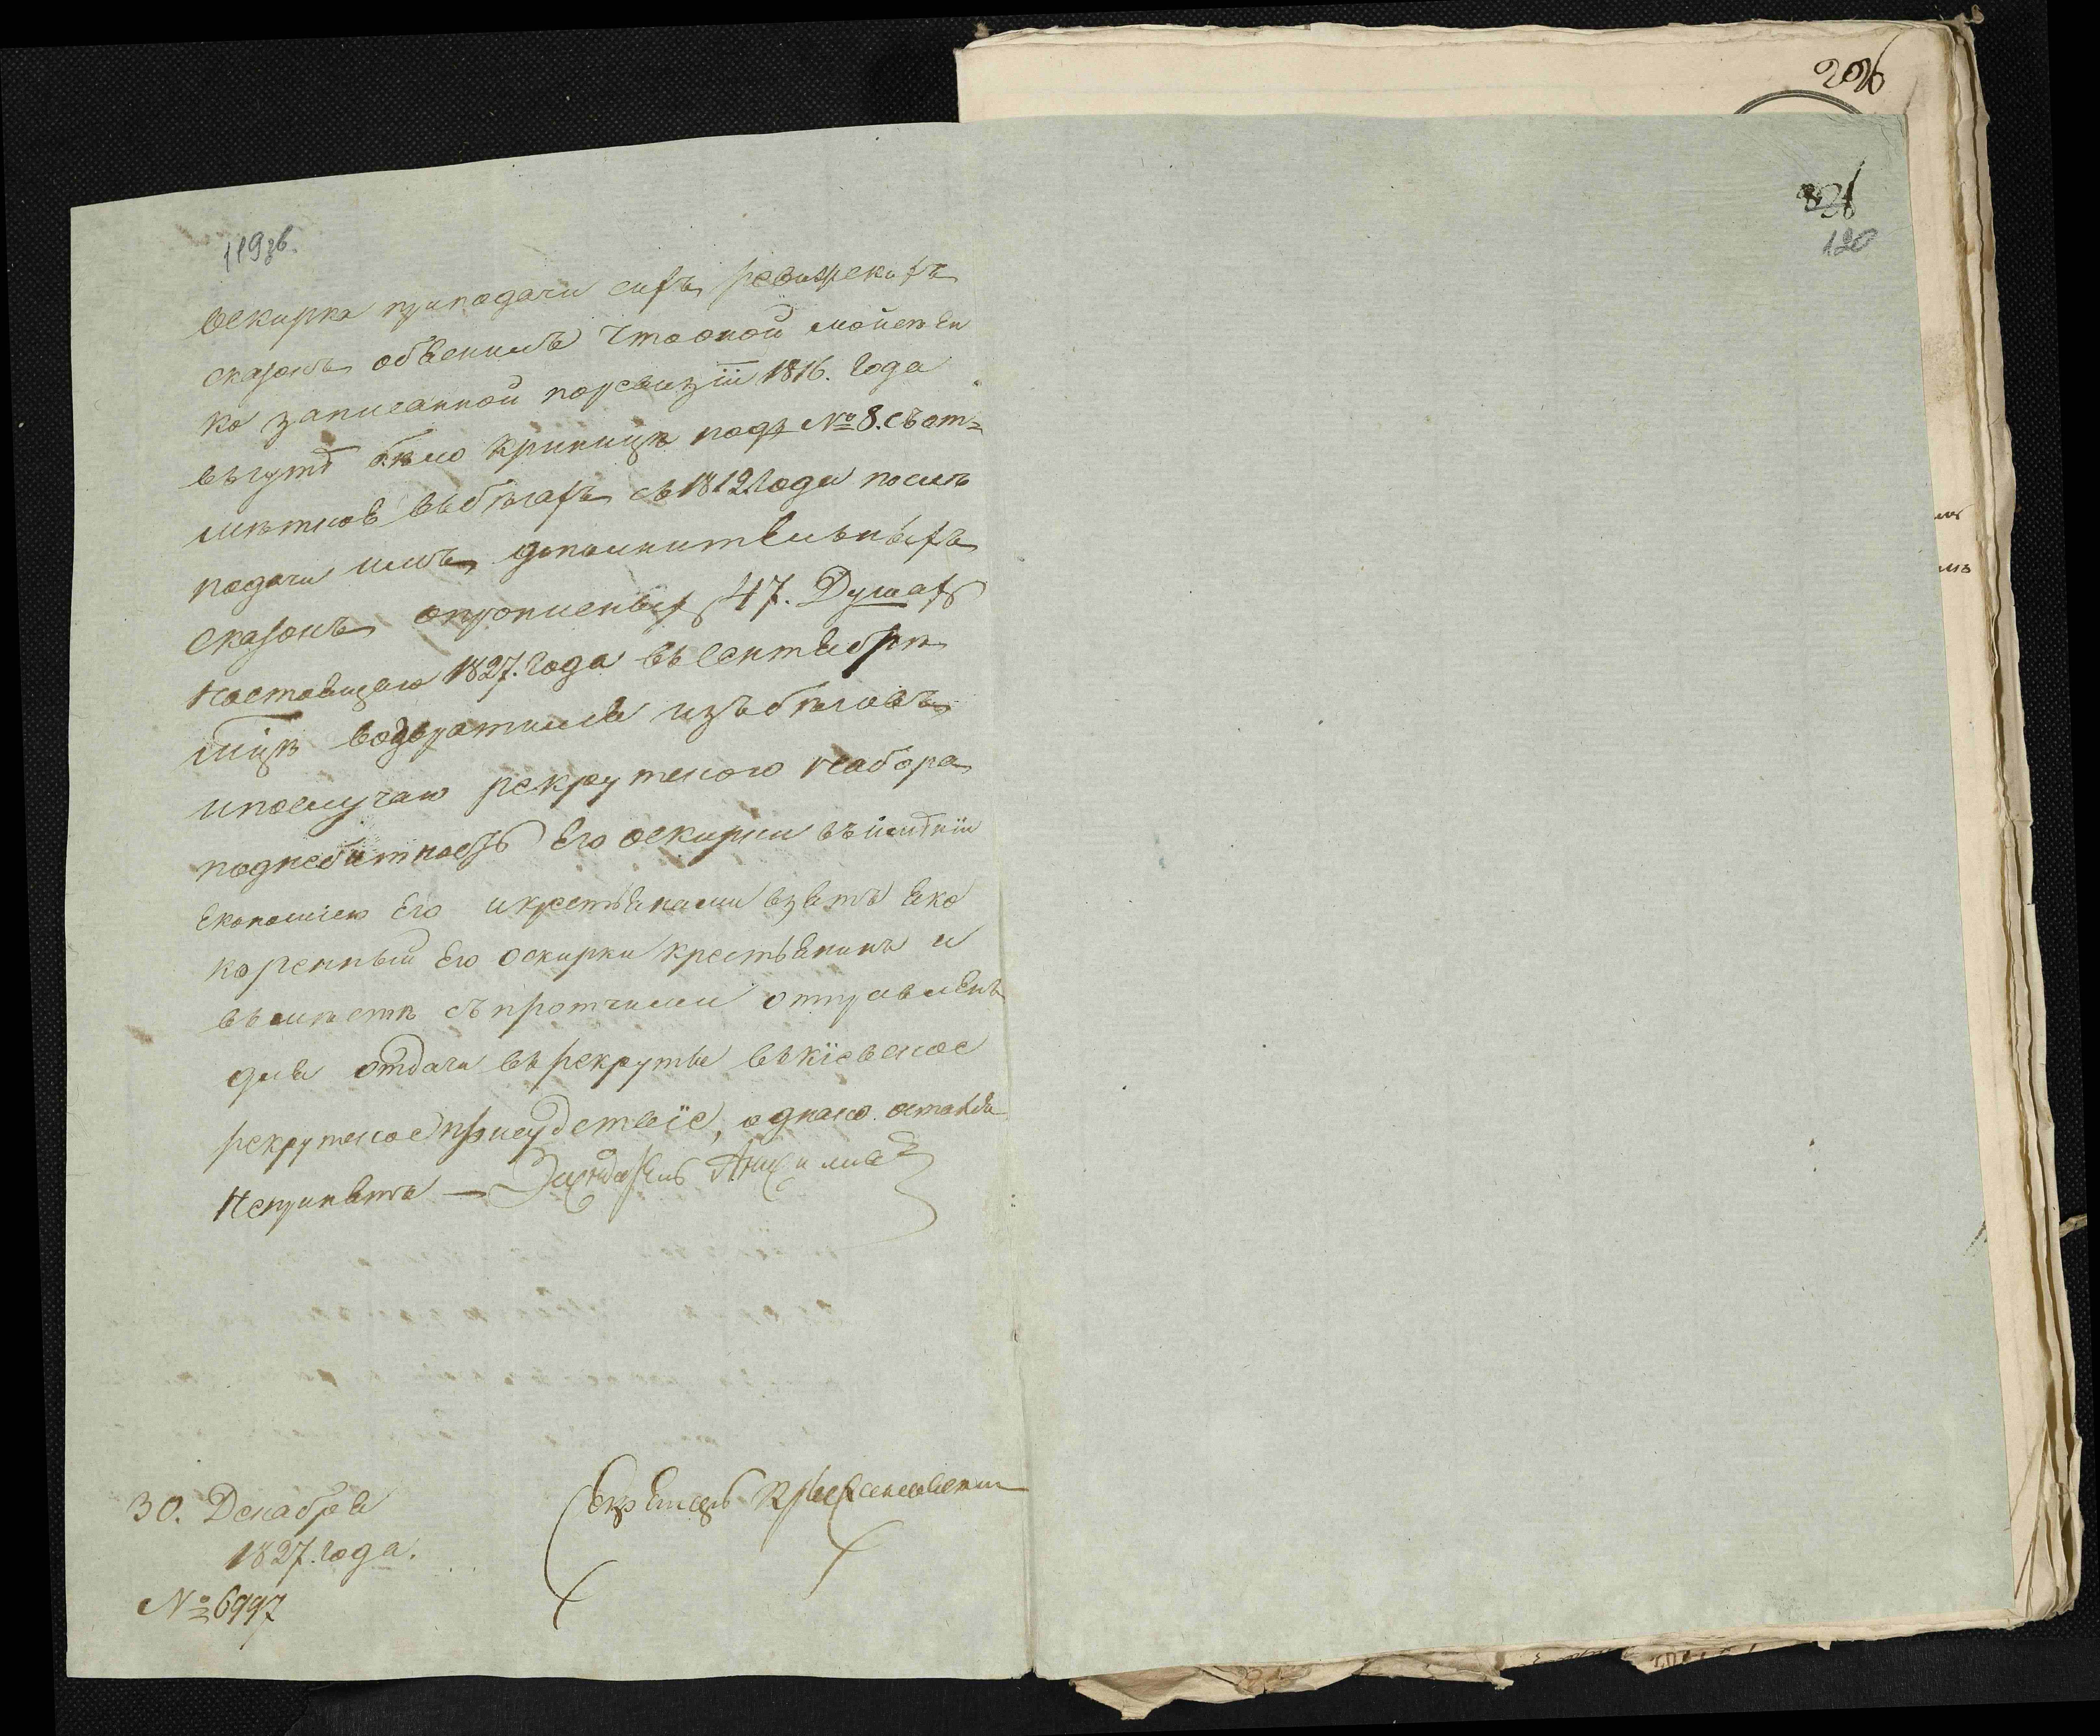 206
120
119зв.
оскирка приподачи сихъ ревизскихъ
сказокъ объвснилъ что оной
ко записанной поревизіи 1816. года
подъ №8. съ от=
меткою въбегахъ съ 1812 года
подачи имъ дополнительныхъ
сказокъ опрописныхъ 47. Душахъ
настоящаго 1827. года въ Сентябрѣ
мцѣ возвратился изъбѣговъ
ипослучаю рекрутского набора
поднебытность Его оскирки
Економіею Его икрестьянами взятъ яко
коренный Его оскирки крестьянинъ и
въместѣ съпротчими отправленъ
для отдачи въ рекруты въкіевское
рекрутское присудствіе, однако остался
непринятъ —
30. Декабря
1827. года.
№ 6997